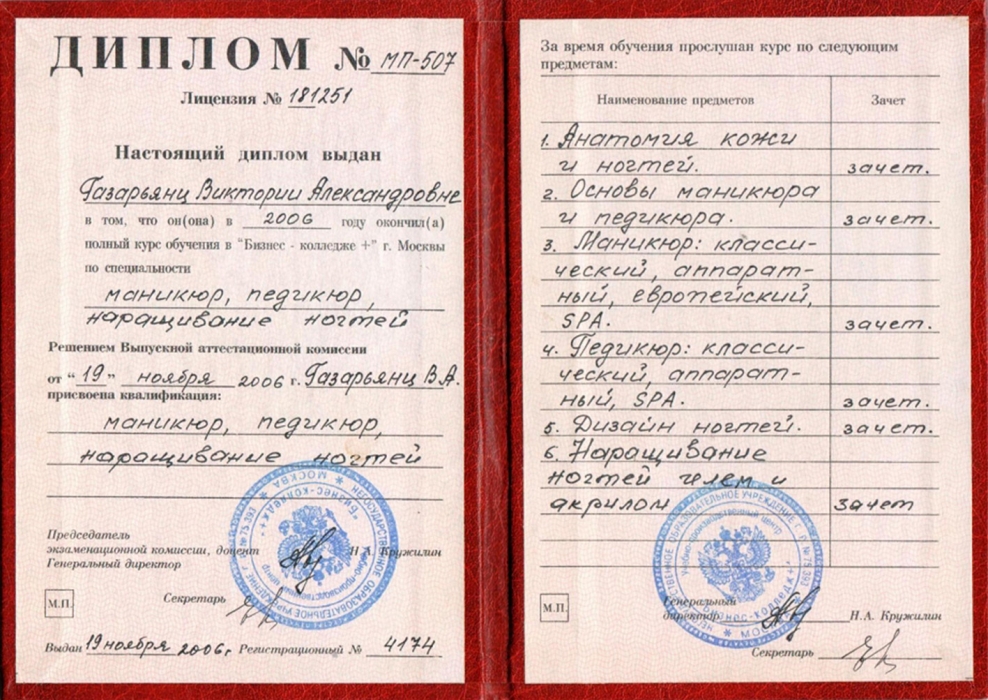 ДИПЛОМ № МП-507
Лицензия № 181251
Настоящий диплом выдан
Газарьянц Виктории Александровне
в том, что он(она) в 2006 году окончил(а)
полный курс обучения в "Бизнес - колледже +" г. Москвы
по специальности
маникюр, педикюр,
наращивание ногтей
Решением Выпускной аттестационной комиссии
от "19" ноября 2006 г. Газарьянц В.А.
присвоена квалификация:
маникюр, педикюр,
наращивание ногтей
Председатель
экзаменационной комиссии, доцент Н.А. Кружилин
Генеральный директор
Секретарь
М.П.
Выдан 19 ноября 2006 г Регистрационный № 4174
За время обучения прослушан курс по следующим
предметам:
Наименование предметов Зачет
1. Анатомия кожи
и ногтей. зачет.
2. Основы маникюра
и педикюра. зачет.
3. Маникюр: класси-
ческий, аппарат-
ный, европейский,
SPA. зачет.
4. Педикюр: класси-
ческий, аппарат-
ный, SPA. зачет.
5. Дизайн ногтей. зачет.
6. Наращивание
ногтей гелем и
акрилом зачет
Генеральный
директор Н.А. Кружилин
М.П.
Секретарь